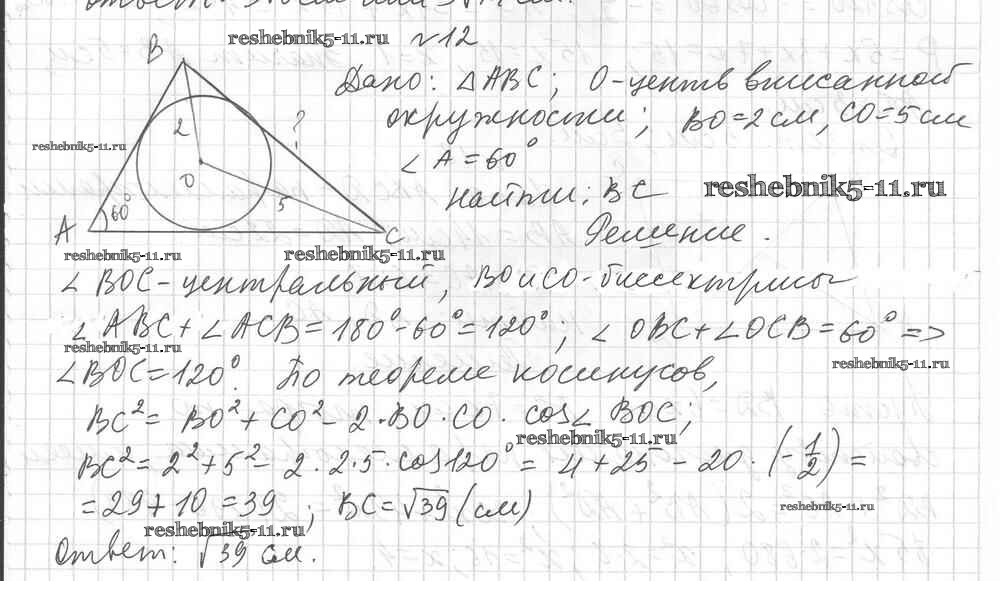 Ответ: см или см.
reshebnik5-11.ru №12
Дано: △ABC; O-центв вписанной
окружности; BO=2см, CO=5см
∠A=60°
reshebnik5-11.ru
найти: BC reshebnik5-11.ru
Решение.
B
2
?
O
5
A 60° C
reshebnik5-11.ru reshebnik5-11.ru
∠BOC-центральный, BO и CO-биссектрисы
∠ABC+∠ACB=180°-60°=120°; ∠OBC+∠OCB=60° =>
reshebnik5-11.ru reshebnik5-11.ru
∠BOC=120°. По теореме косинусов,
BC²= BO²+CO²-2·BO·CO·cos∠BOC;
reshebnik5-11.ru
BC²=2²+5²-2·2·5·cos120°= 4+25-20·(-1/2)=
=29+10=39; BC=√39(см)
reshebnik5-11.ru reshebnik5-11.ru
Ответ: √39 см.